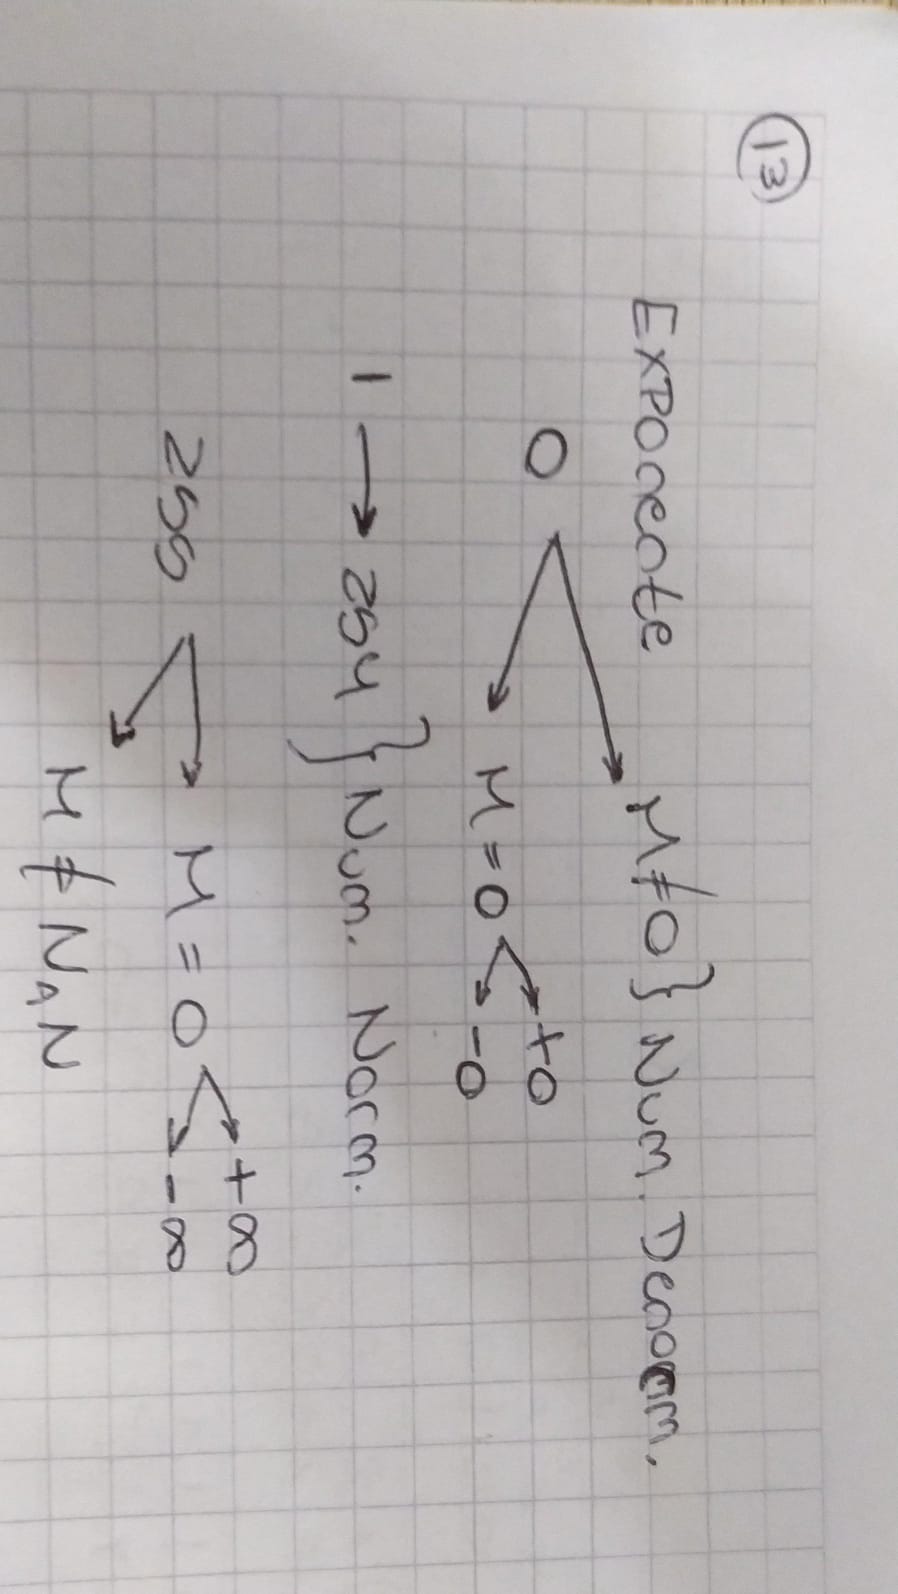 13
Exponente M≠0} Num. Denorm.
0 M=0 +0
-0
1 → 254 } Num. Norm.
255 → M = 0 +∞
-∞
M ≠ NAN